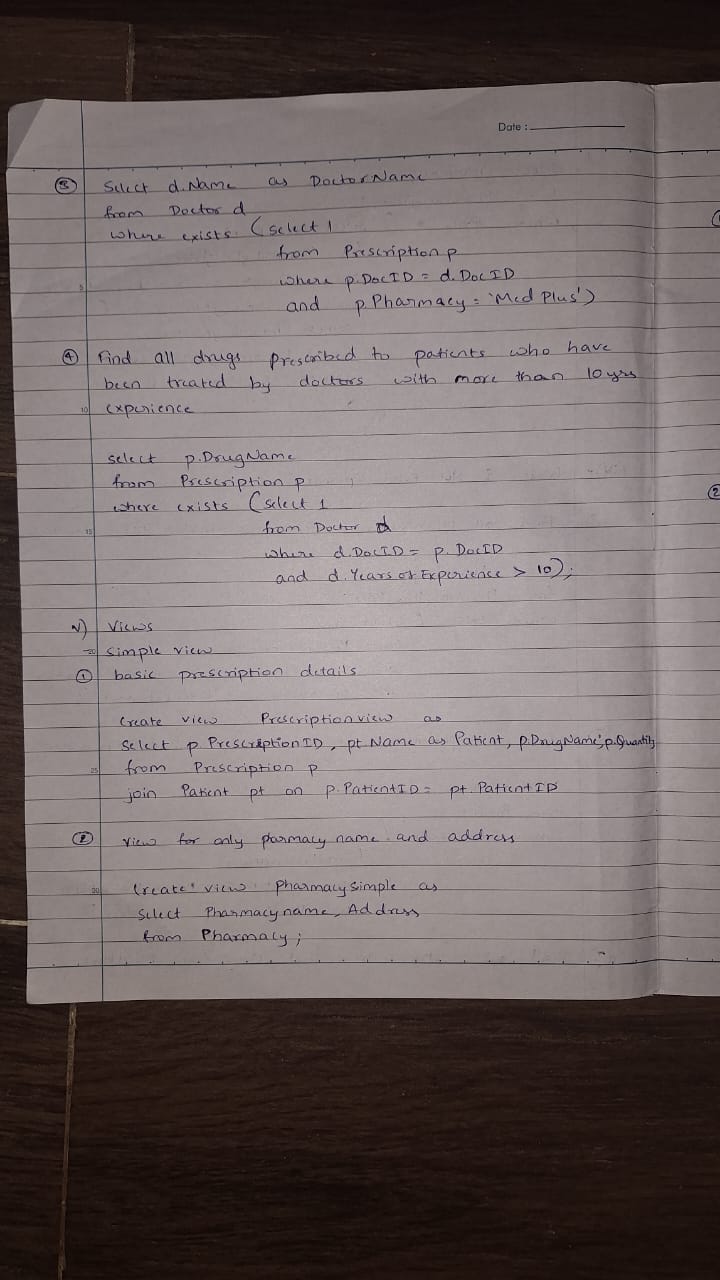 Date :
③ Select d.Name as DoctorName
from Doctor d
where exists (select 1
from Prescription p
5
where p.DocID = d.DocID
and p.Pharmacy = 'Med Plus')
④ Find all drugs prescribed to patients who have
been treated by doctors with more than 10 yrs
10 experience
select p.DrugName
from Prescription p
where exists (select 1
15 from Doctor d
where d.DocID = p.DocID
and d.Years of Experience > 10);
V) Views
20 simple view
① basic prescription details
Create view Prescriptionview as
Select p PrescriptionID, pt.Name as Patient, p.DrugName, p.Quantity
25 from Prescription p
join Patient pt on p.PatientID = pt.PatientID
② View for only parmacy name and address
30 Create view Pharmacysimple as
Select Pharmacyname, Address
from Pharmacy;
②